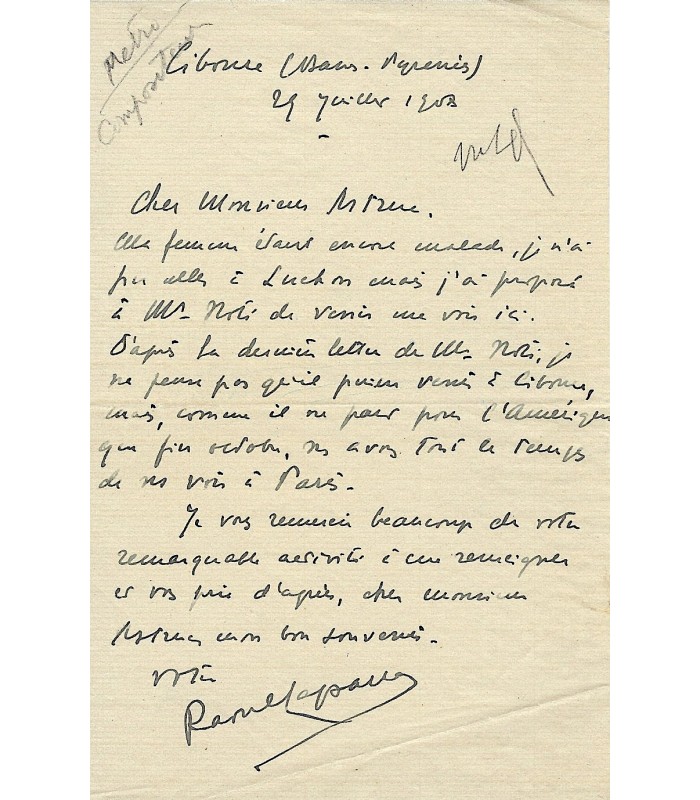 Metro
Compositeur
Ciboure (Basses-Pyrénées)
29 Juillet 1908
Cher Monsieur Astruc.
Ma femme étant encore malade, je n'ai
pu aller à Luchon mais j'ai proposé
à Mr Noté de venir me voir ici.
D'après la dernière lettre de Mr Noté, je
ne pense pas qu'il puisse venir à Ciboure,
mais, comme il ne part pour l'Amérique
que fin octobre, ns avons tout le temps
de ns voir à Paris.
Je vous remercie beaucoup de votre
remarquable activité à me renseigner
et vos prie d'agréer, cher monsieur
Astruc mon bon souvenir.
Votre
Raoul Laparra